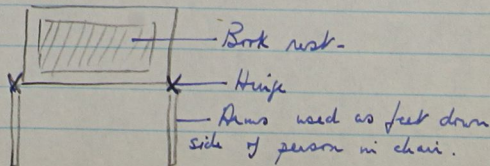 Book rest-
Hinge
Arms used as feet down
side of person in chair.